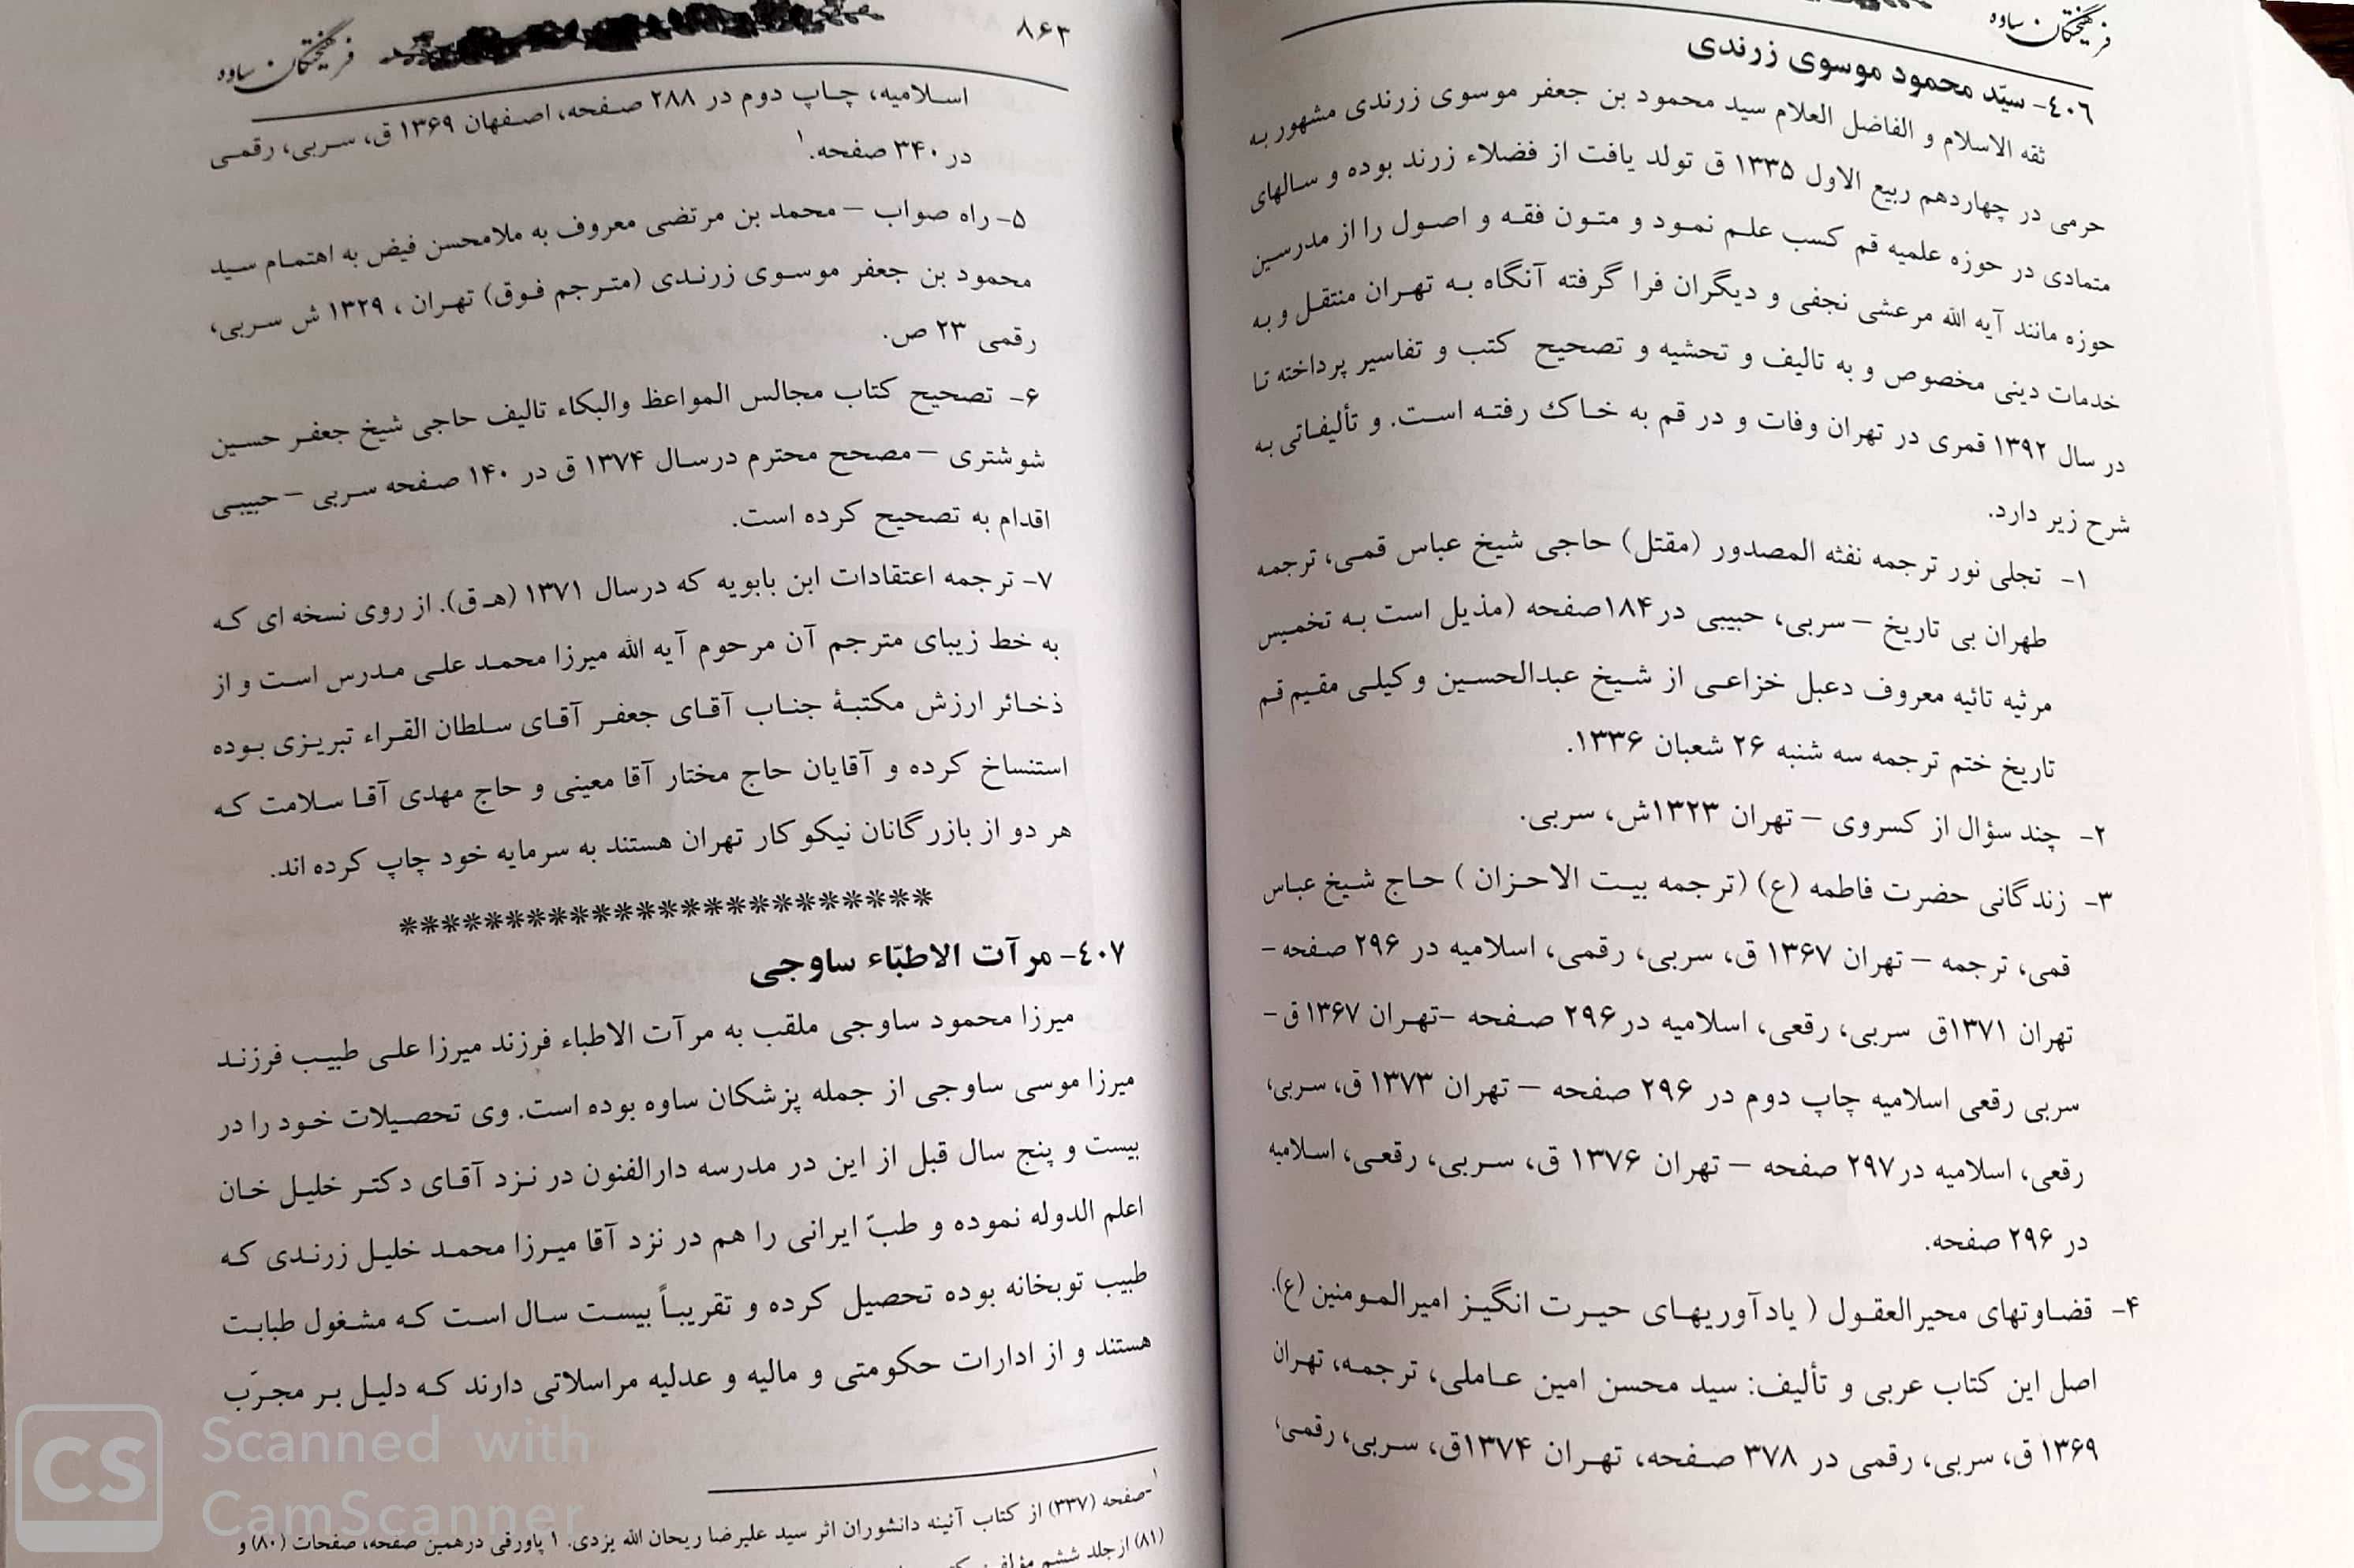 فرهیختگان ساوه
٤٠٦- سیّد محمود موسوی زرندی
ثقه الاسلام و الفاضل العلام سید محمود بن جعفر موسوی زرندی مشهور به
حرمی در چهاردهم ربیع الاول ۱۳۳۵ ق تولد یافت از فضلاء زرند بوده و سالهای
متمادی در حوزه علمیه قم کسب علم نمود و متون فقه و اصول را از مدرسین
حوزه مانند آیه الله مرعشی نجفی و دیگران فرا گرفته آنگاه به تهران منتقل و به
خدمات دینی مخصوص و به تالیف و تحشیه و تصحیح کتب و تفاسیر پرداخته تا
در سال ۱۳۹۲ قمری در تهران وفات و در قم به خاک رفته است. و تألیفاتی به
شرح زیر دارد.
۱- تجلی نور ترجمه نفثه المصدور (مقتل) حاجی شیخ عباس قمی، ترجمه
طهران بی تاریخ – سربی، حبیبی در ۱۸۴صفحه (مذیل است به تخمیس
مرثیه تائیه معروف دعبل خزاعی از شیخ عبدالحسین وکیلی مقیم قم
تاریخ ختم ترجمه سه شنبه ۲۶ شعبان ۱۳۳۶.
۲- چند سؤال از کسروی – تهران ۱۳۲۳ش، سربی.
۳- زندگانی حضرت فاطمه (ع) (ترجمه بیت الاحزان ) حاج شیخ عباس
قمی، ترجمه – تهران ۱۳۶۷ ق، سربی، رقمی، اسلامیه در ۲۹۶ صفحه-
تهران ۱۳۷۱ق سربی، رقعی، اسلامیه در ۲۹۶ صفحه -تهران ۱۳۶۷ ق-
سربی رقعی اسلامیه چاپ دوم در ۲۹۶ صفحه – تهران ۱۳۷۳ ق، سربی،
رقعی، اسلامیه در ۲۹۷ صفحه – تهران ۱۳۷۶ ق، سربی، رقعی، اسلامیه
در ۲۹۶ صفحه.
۴- قضاوتهای محیرالعقول ( یادآوریهای حیرت انگیز امیرالمومنین (ع).
اصل این کتاب عربی و تألیف: سید محسن امین عاملی، ترجمه، تهران
۱۳۶۹ ق، سربی، رقمی در ۳۷۸ صفحه، تهران ۱۳۷۴ق، سربی، رقمی،
۸۶۳
فرهیختگان ساوه
اسلامیه، چاپ دوم در ۲۸۸ صفحه، اصفهان ۱۳۶۹ ق، سربی، رقمی
در ۳۴۰ صفحه.۱
۵- راه صواب – محمد بن مرتضی معروف به ملامحسن فیض به اهتمام سید
محمود بن جعفر موسوی زرندی (مترجم فوق) تهران ، ۱۳۲۹ ش سربی،
رقمی ۲۳ ص.
۶- تصحیح کتاب مجالس المواعظ والبکاء تالیف حاجی شیخ جعفر حسین
شوشتری – مصحح محترم درسال ۱۳۷۴ ق در ۱۴۰ صفحه سربی – حبیبی
اقدام به تصحیح کرده است.
۷- ترجمه اعتقادات ابن بابویه که درسال ۱۳۷۱ (هـ ق). از روی نسخه ای که
به خط زیبای مترجم آن مرحوم آیه الله میرزا محمد علی مدرس است و از
ذخائر ارزش مکتبهٔ جناب آقای جعفر آقای سلطان القراء تبریزی بوده
استنساخ کرده و آقایان حاج مختار آقا معینی و حاج مهدی آقا سلامت که
هر دو از بازرگانان نیکو کار تهران هستند به سرمایه خود چاپ کرده اند.
*************************
٤٠٧- مرآت الاطبّاء ساوجی
میرزا محمود ساوجی ملقب به مرآت الاطباء فرزند میرزا علی طبیب فرزند
میرزا موسی ساوجی از جمله پزشکان ساوه بوده است. وی تحصیلات خود را در
بیست و پنج سال قبل از این در مدرسه دارالفنون در نزد آقای دکتر خلیل خان
اعلم الدوله نموده و طبّ ایرانی را هم در نزد آقا میرزا محمد خلیل زرندی که
طبیب توبخانه بوده تحصیل کرده و تقریباً بیست سال است که مشغول طبابت
هستند و از ادارات حکومتی و مالیه و عدلیه مراسلاتی دارند که دلیل بر مجرّب
۱-صفحه (۳۳۷) از کتاب آئینه دانشوران اثر سید علیرضا ریحان الله یزدی. ۱ پاورقی درهمین صفحه، صفحات (۸۰) و
(۸۱) از جلد ششم
CS Scanned with
CamScanner